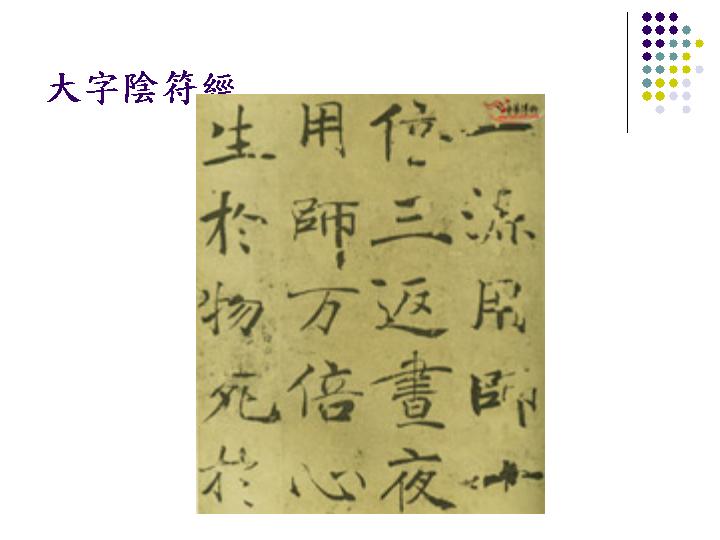 大字陰符經
一源用師十
倍三返晝夜
用師万倍心
生於物死於